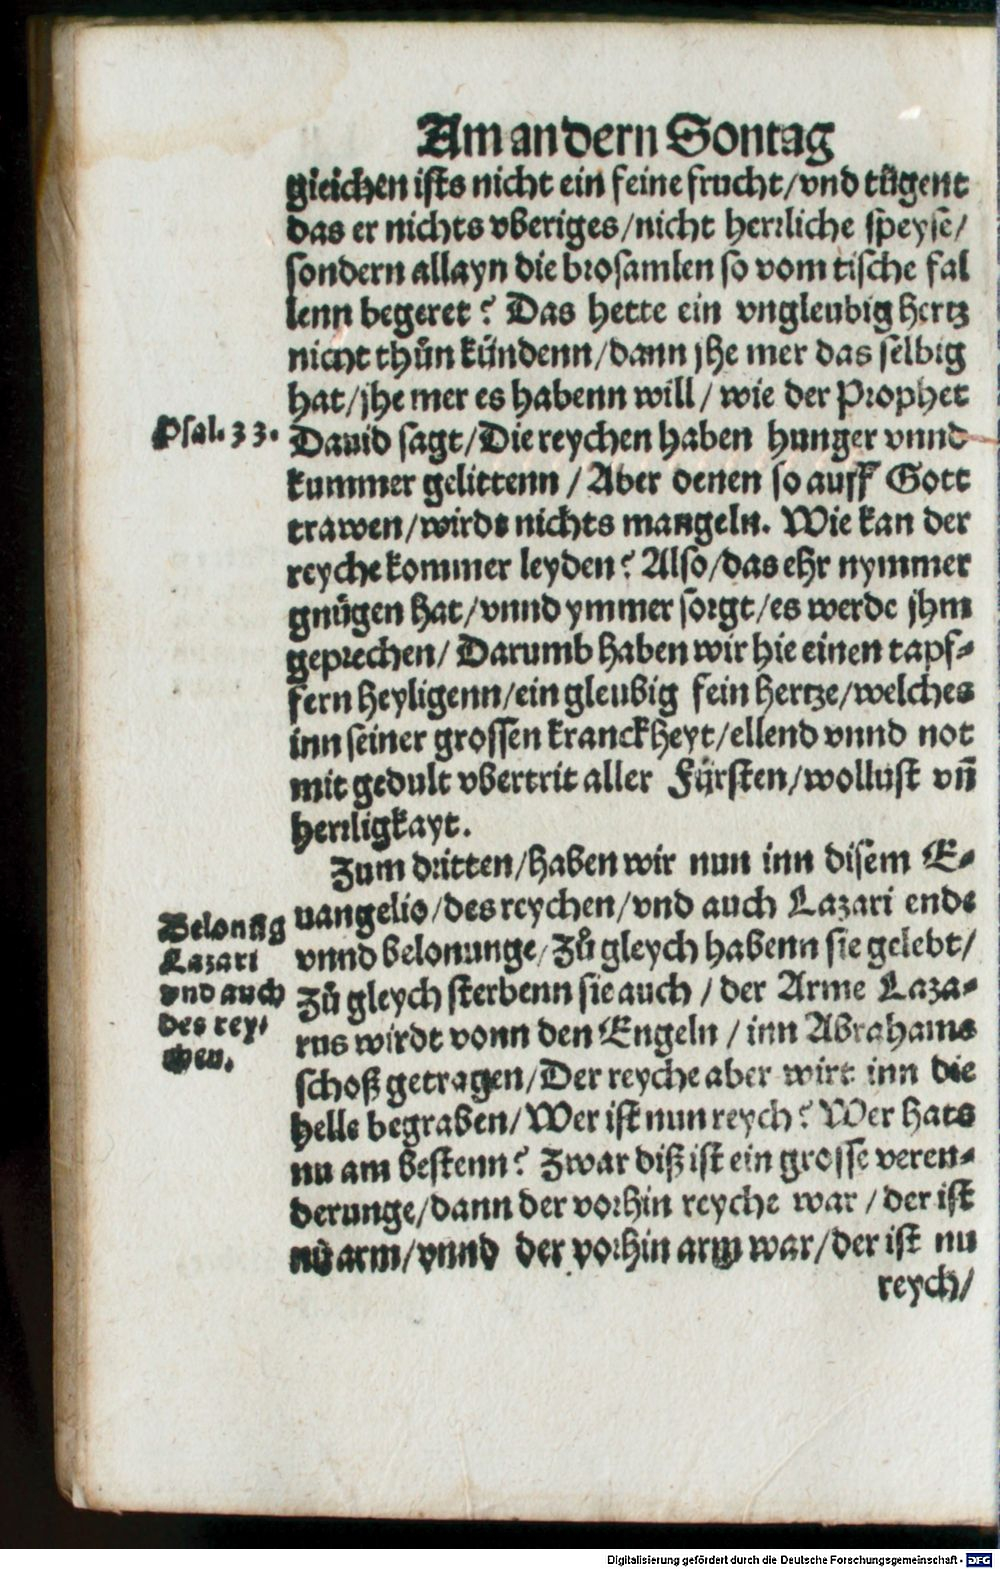 Am andern Sontag
gleichen ists nicht ein feine frucht/vnd tůgent
das er nichts vberiges/nicht herrliche speyse/
sondern allayn die brosamlen so vom tische fal
lenn begeret? Das hette ein vngleubig hertz
nicht thůn kündenn/dann jhe mer das selbig
hat/jhe mer es habenn will/ wie der Prophet
Psal. 33.
Dauid sagt/Die reychen haben hunger vnnd
kummer gelittenn / Aber denen so auff Gott
trawen/wirdt nichts mangeln. Wie kan der
reyche kommer leyden? Also/das ehr nymmer
gnůgen hat/vnnd ymmer sorgt/es werde jhm
geprechen/ Darumb haben wir hie einen tapf-
fern heyligenn/ein gleubig fein hertze/welches
inn seiner grossen kranckheyt/ellend vnnd not
mit gedult vbertrit aller Fürsten/wollust vñ
herrligkayt.
Zum dritten/haben wir nun inn disem E-
uangelio/des reychen/vnd auch Lazari ende
Belonũg
Lazari
vnd auch
des rey-
chen.
vnnd belonunge/Zů gleych habenn sie gelebt/
Zů gleych sterbenn sie auch / der Arme Laza-
rus wirdt vonn den Engeln / inn Abrahams
schoß getragen/Der reyche aber wirt inn die
helle begraben/Wer ist nun reych? Wer hats
nu am bestenn? Zwar diß ist ein grosse veren-
derunge/dann der vorhin reyche war / der ist
nů arm/vnnd der vorhin arm war/der ist nu
reych/
Digitalisierung gefördert durch die Deutsche Forschungsgemeinschaft - DFG